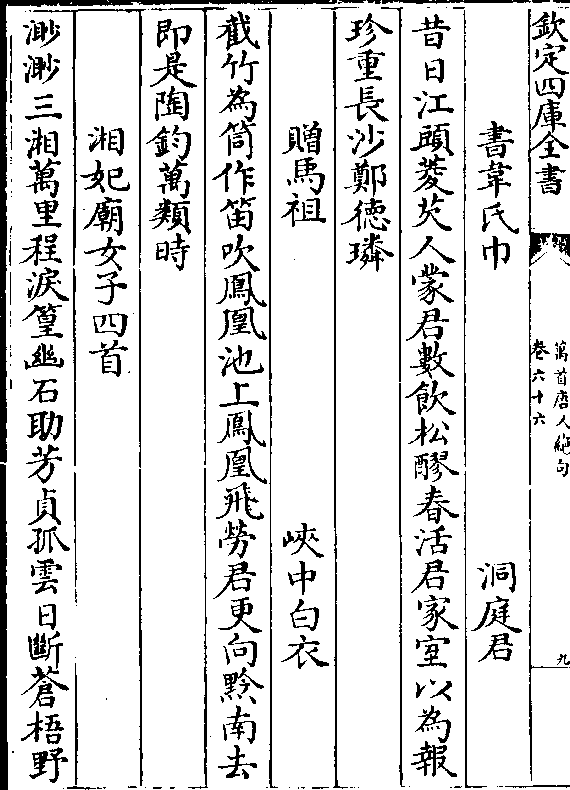 欽定四庫全書
萬首唐人絶句
卷六十六
九
書韋氏巾 洞庭君
昔日江頭菱芡人蒙君數飲松醪春活君家室以為報
珍重長沙鄭德璘
贈馬祖 峽中白衣
截竹為筒作笛吹鳳凰池上鳳凰飛勞君更向黔南去
即是陶鈞萬類時
湘妃廟女子四首
渺渺三湘萬里程淚篁幽石助芳貞孤雲日斷蒼梧野